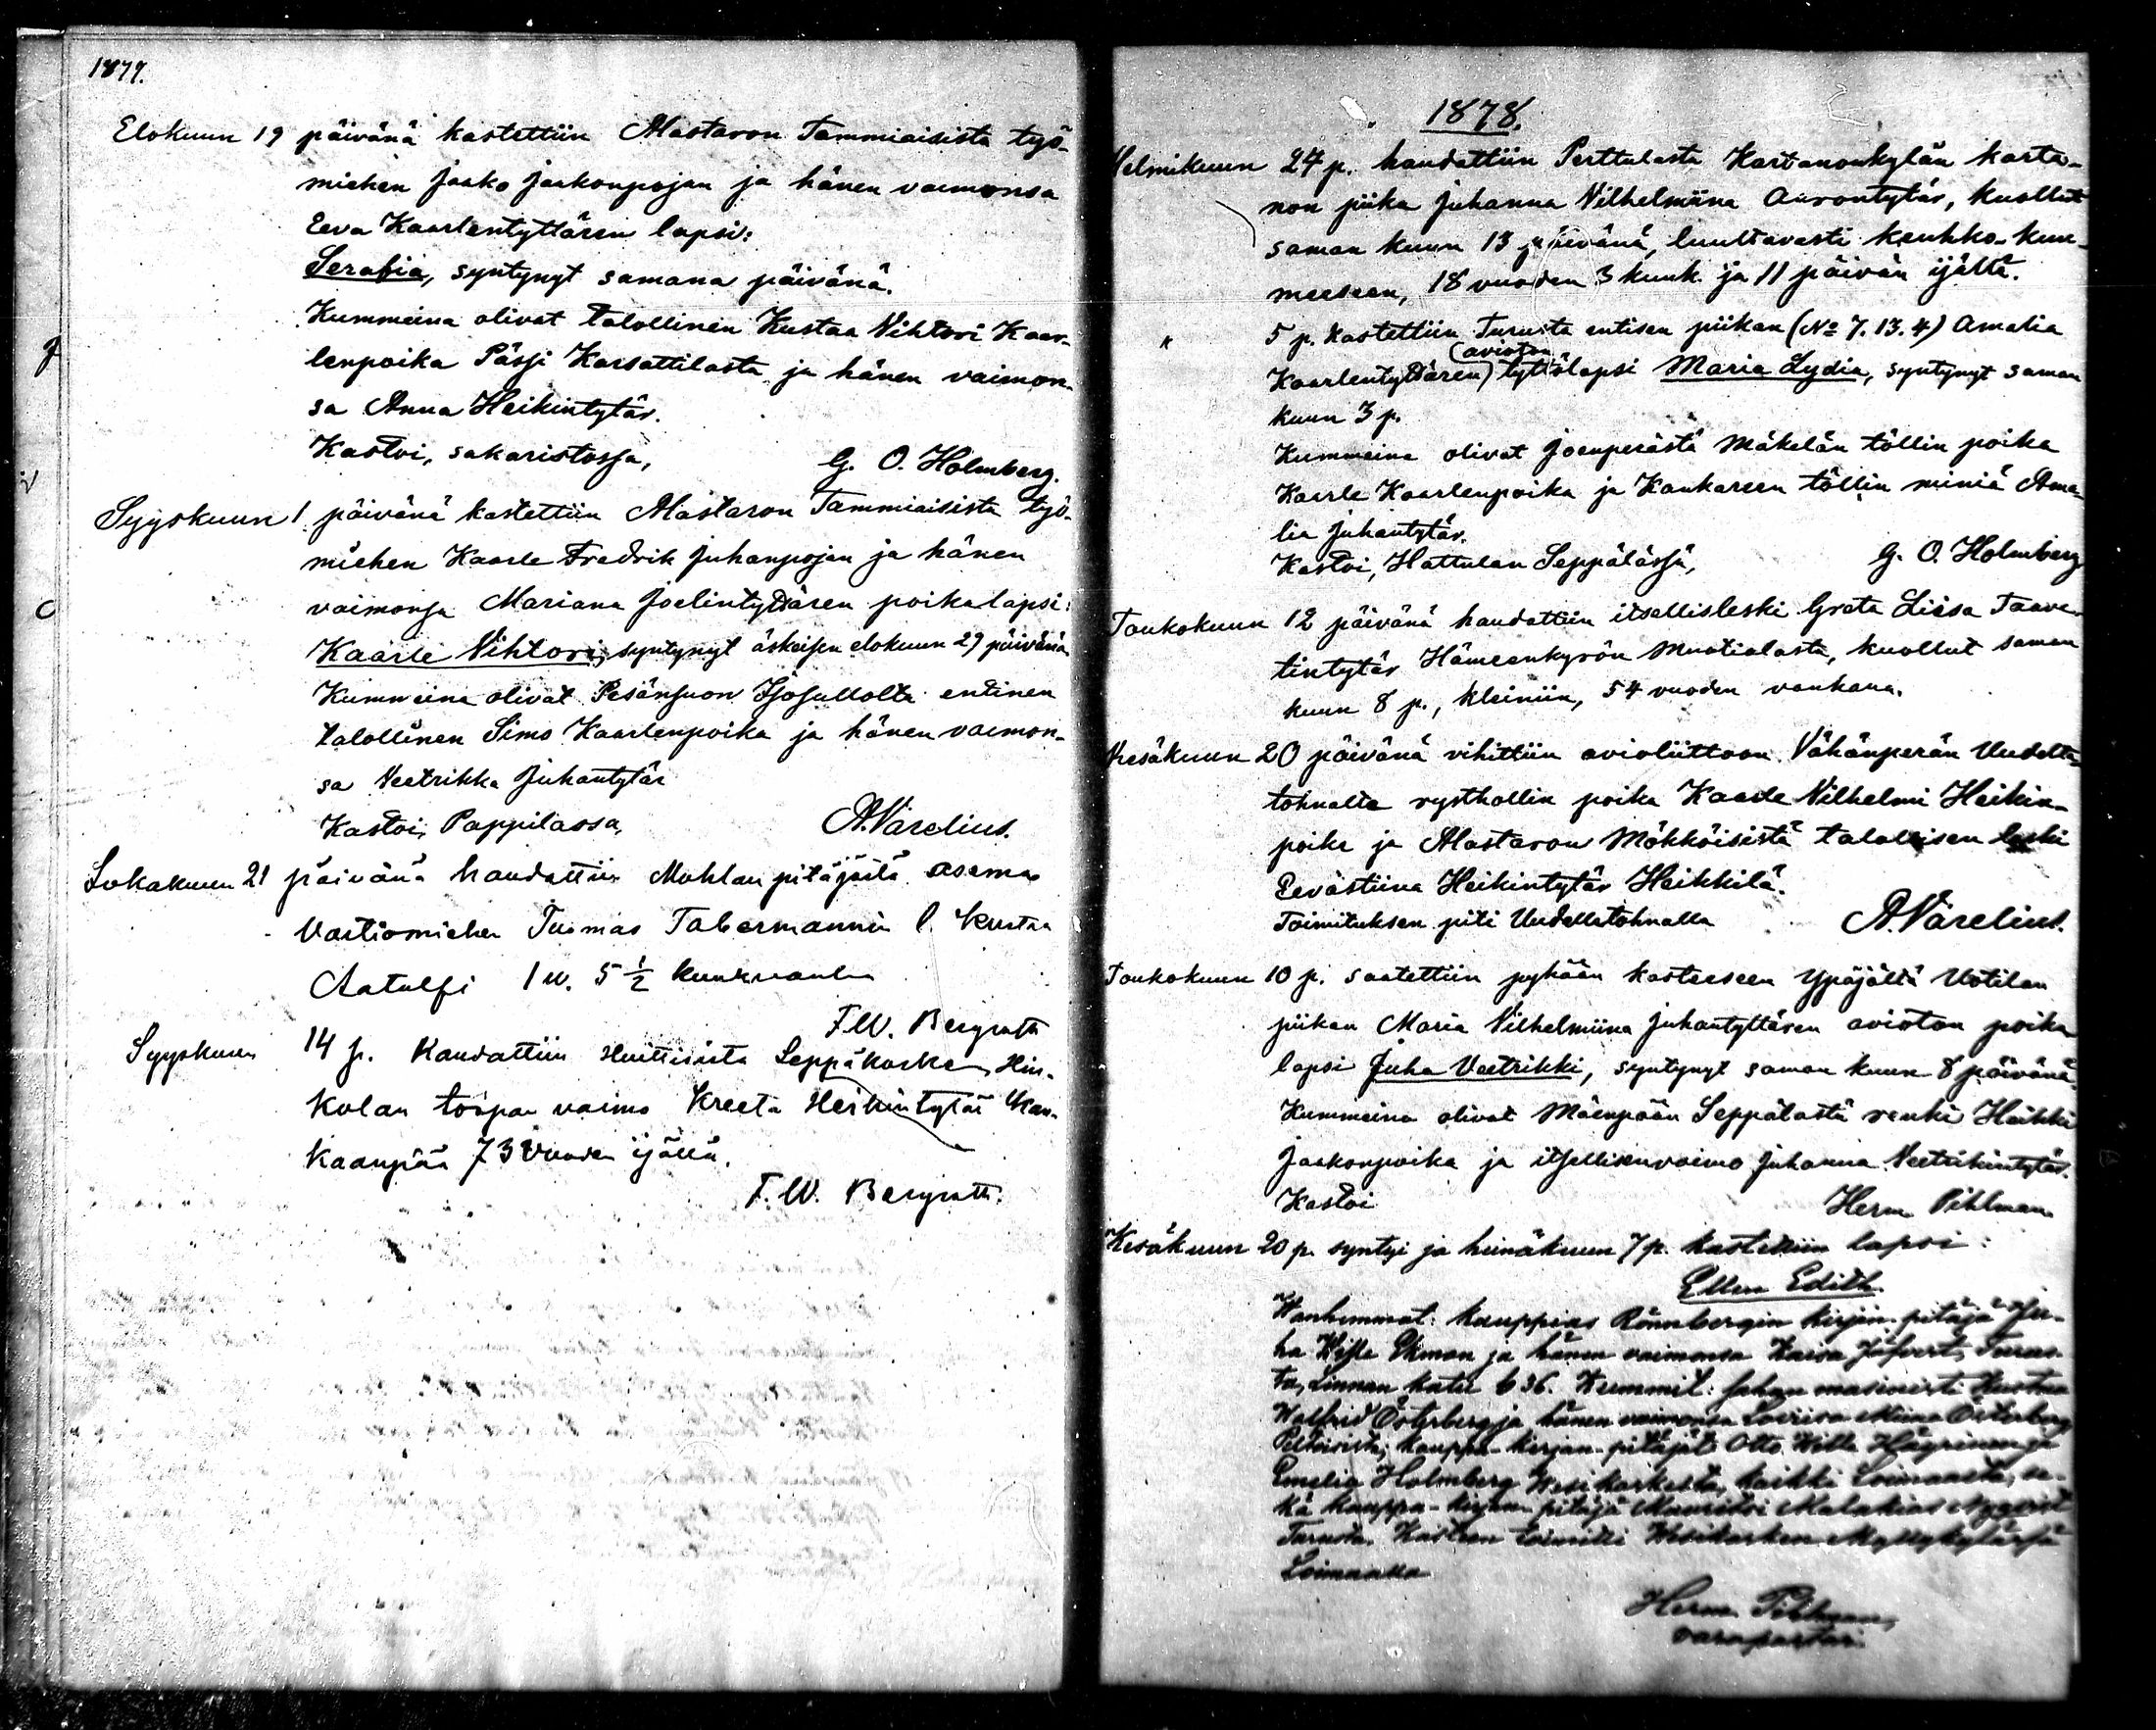 1877.
Elokuun 19 päivänä kastettiin Alastaron Tammiaisista työ-
miehen Jaako Jaakonpojan ja hänen vaimonsa
Eeva Kaarlentyttären lapsi:
Serafia, syntynyt samana päivänä.
Kummeina olivat talollinen Kustaa Vihtori Kaar-
lenpoika Pässi Karsattilasta ja hänen vaimon-
sa Anna Heikintytär.
Kastoi, sakaristossa, G. O. Holmberg.
Syyskuun 1 päivänä kastettiin Alastaron Tammiaisista työ-
miehen Kaarle Fredrik Juhanpojan ja hänen
vaimonsa Mariana Joelintyttären poikalapsi:
Kaarle Vihtori, syntynyt äskeisen elokuun 29 päivänä
Kummeina olivat Pesänsuon Isosullolta entinen
talollinen Simo Kaarlenpoika ja hänen vaimon-
sa Veetrikka Juhantytär
Kastoi, Pappilassa, A. Varelius.
Lokakuun 21 päivänä haudattiin Mohlan pitäjästä asema
Vartiomiehen Tuomas Tabermannin l. Kustaa
Aatolfi 1 w. 5 1/2 kuuk vanha
F. W. Bergroth
Syyskuun 14 p. Haudattiin Huittisista Leppäkosken Hin-
kolan torpan vaimo Kreeta Heikintytär Kan-
kaanpää 73 Vuoden ijällä.
F. W. Bergroth.
1878.
Helmikuun 24 p. haudattiin Perttulasta Kartanonkylän karta-
non piika Juhanna Vilhelmiina Aarontytär, kuollut
saman kuun 13 päivänä, luultavasti keuhko-kuu-
meeseen, 18 vuoden 3 kuuk. ja 11 päivän ijältä.
" 5 p. kastettiin Turusta entisen piikan (No 7. 13. 4) Amalia
Kaarlentyttären (avioton) tyttölapsi Maria Lydia, syntynyt saman
kuun 3 p.
Kummeina olivat Joenperästä Mäkelän töllin poika
Kaarle Kaarlenpoika ja Kankareen töllin miniä Ama-
lia Juhantytär.
Kastoi, Hattulan Seppälässä, G. O. Holmberg
Toukokuun 12 päivänä haudattiin itsellisleski Greta Liisa Taave-
tintytär Hämeenkyrön Muotialasta, kuollut saman
kuun 8 p., kleiniin, 54 vuoden vanhana.
Kesäkuun 20 päivänä vihittiin avioliittoon Vähänperän Uudelta-
tohnalta rysthollin poika Kaarle Vilhelmi Heikin-
poika ja Alastaron Mökköisistä talollisen leski
Eevastiina Heikintytär Heikkilä.
Toimituksen piti Uudellatohnalla A. Varelius.
Toukokuun 10 p. saatettiin pyhään kasteeseen Ypäjältä Uotilan
piikan Maria Vilhelmiina Juhantyttären avioton poika
lapsi Juha Veetrikki, syntynyt saman kuun 8 päivänä.
Kummeina olivat Mäenpään Seppälästä renki Heikki
Jaakonpoika ja itsellisenvaimo Juhanna Veetrikintytär.
Kastoi Herm Pihlman
Kesäkuun 20 p. syntyi ja heinäkuun 7 p. kastettiin lapsi:
Ellen Edith.
Wanhemmat: kauppias Rönnbergin kirjan-pitäjä Ju-
ha Wille Ekman ja hänen vaimonsa Kaisa Jäfvert, Turus-
ta, Linnan katu 636. Kummit: Sahan masinisti Kustaa
Walfrid Österberg ja hänen vaimonsa Loviisa Miina Österberg
Peltoisista; kauppa-kirjan-pitäjät Otto Wille Hägrinen ja
Emelia Holmberg Wesikoskesta, kaikki Loimaasta, se-
kä kauppa-kirjan-pitäjä Mauritsi Malakias Nyqvist
Turusta. Kasteen toimitti Wesikosken Myllykylässä
Loimaalla
Herm. Pihlman,
varapastori.